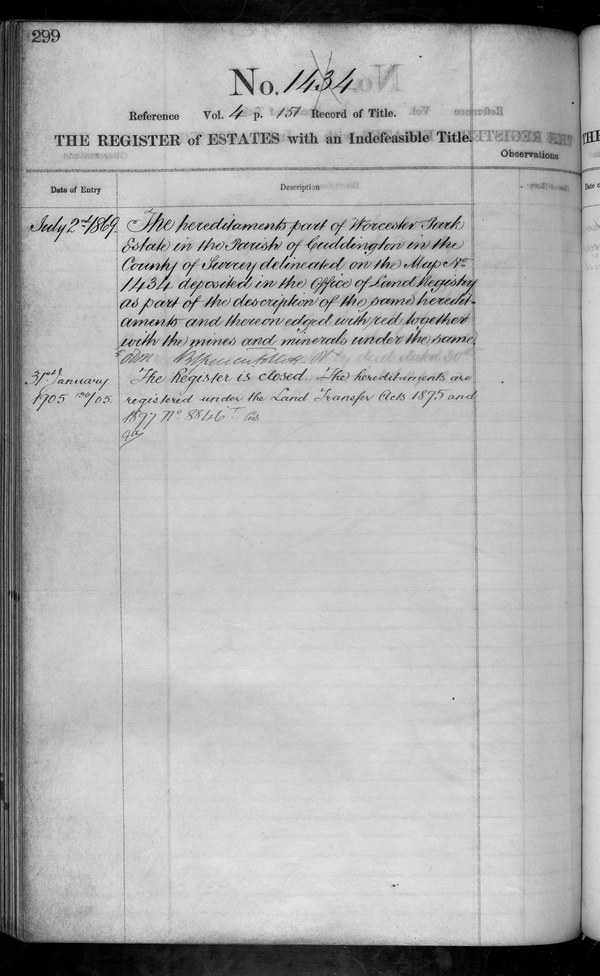 299
No. 1434
Reference Vol. 4 p. 151 Record of Title.
THE REGISTER of ESTATES with an Indefeasible Title.
Observations
Date of Entry
Description
July 2nd 1869.
The hereditaments part of Worcester Park
Estate in the Parish of Cuddington in the
County of Surrey delineated on the Map No
1434 deposited in the Office of Land Registry
as part of the description of the same heredit-
aments and thereon edged with red together
with the mines and minerals under the same.
31st January
1905
The Register is closed. The hereditaments are
registered under the Land Transfer Acts 1875 and
1897 No 8846